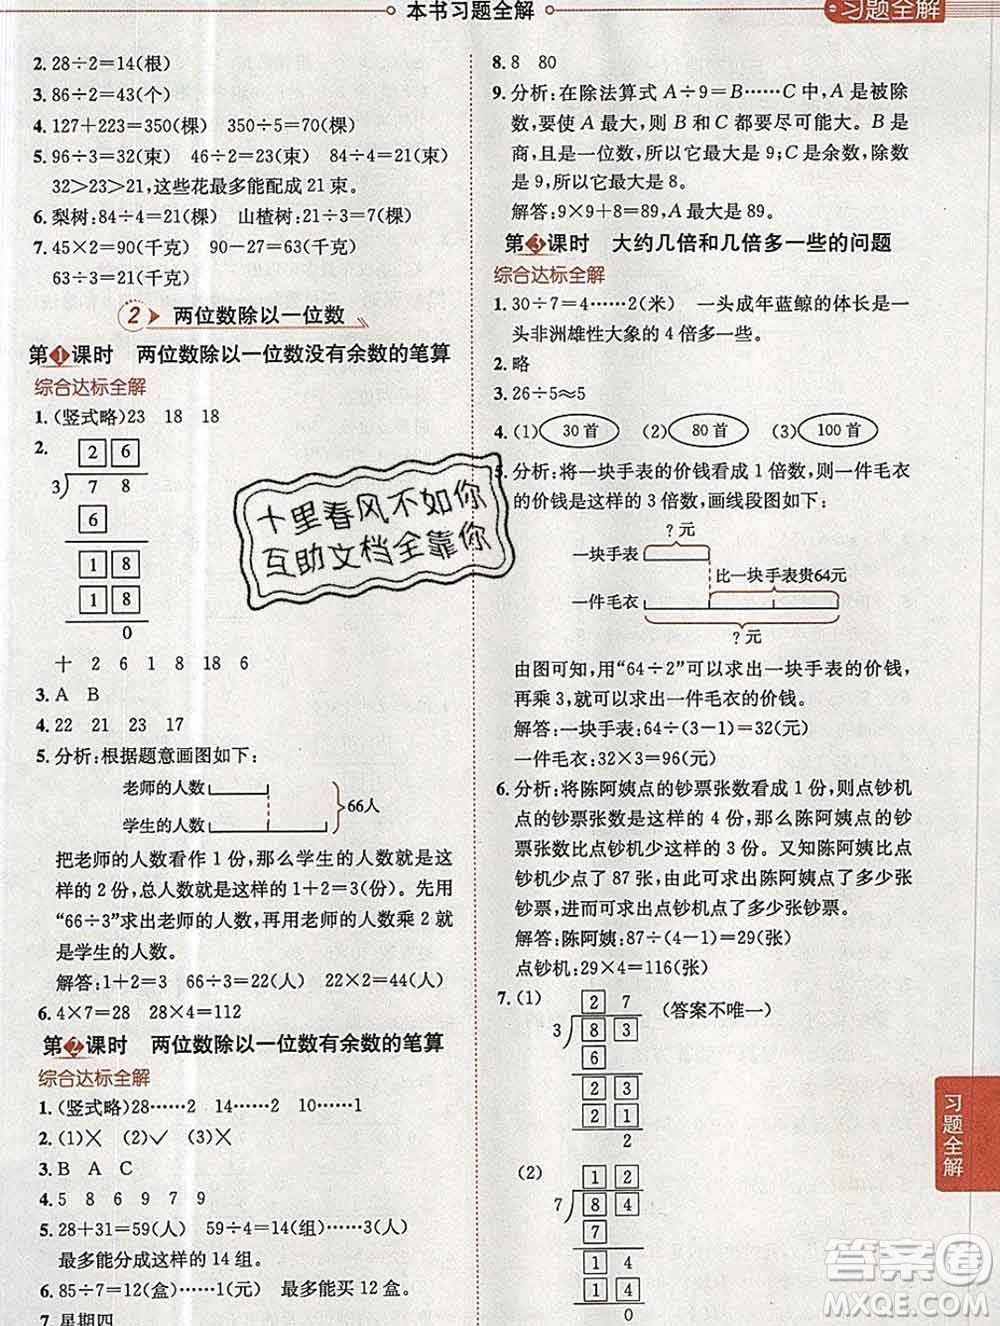 本书习题全解
习题全解
2. 28÷2=14(根)
3. 86÷2=43(个)
4. 127+223=350(棵) 350÷5=70(棵)
5. 96÷3=32(束) 46÷2=23(束) 84÷4=21(束)
32>23>21,这些花最多能配成 21 束。
6. 梨树:84÷4=21(棵) 山楂树:21÷3=7(棵)
7. 45×2=90(千克) 90÷3=30(千克)
63÷3=21(千克)
2 两位数除以一位数
第1课时 两位数除以一位数没有余数的笔算
综合达标全解
1. (竖式略)23 18 18
2.
2 6
3 7 8
6
1 8
1 8
0
十 2 6 1 8 18 6
3. A B
4. 22 21 23 17
5. 分析:根据题意画图如下:
老师的人数
66人
学生的人数
把老师的人数看作 1 份,那么学生的人数就是这
样的 2 份,总人数就是这样的 1+2=3(份)。先用
“66÷3”求出老师的人数,再用老师的人数乘 2 就
是学生的人数。
解答:1+2=3 66÷3=22(人) 22×2=44(人)
6. 4×7=28 28×4=112
第2课时 两位数除以一位数有余数的笔算
综合达标全解
1. (竖式略)28……2 14……2 10……1
2. (1)× (2)✓ (3)×
3. B A C
4. 5 8 6 9 7 9
5. 28+31=59(人) 59÷4=14(组)……3(人)
最多能分成这样的 14 组。
6. 85÷7=12(盒)……1(元) 最多能买 12 盒。
7. 星期四
8. 8 80
9. 分析:在除法算式 A÷9=B……C 中,A 是被除
数,要使 A 最大,则 B 和 C 都要尽可能大。B 是
商,且是一位数,所以它最大是 9;C 是余数,除数
是 9,所以它最大是 8。
解答:9×9+8=89,A 最大是 89。
第3课时 大约几倍和几倍多一些的问题
综合达标全解
1. 30÷7=4……2(米) 一头成年蓝鲸的体长是一
头非洲雄性大象的 4 倍多一些。
2. 略
3. 26÷5≈5
4. (1) 30 首 (2) 80 首 (3) 100 首
5. 分析:将一块手表的价钱看成 1 倍数,则一件毛衣
的价钱是这样的 3 倍数,画线段图如下:
?元
一块手表
比一块手表贵64元
一件毛衣
?元
由图可知,用“64÷2”可以求出一块手表的价钱,
再乘 3,就可以求出一件毛衣的价钱。
解答:一块手表:64÷(3-1)=32(元)
一件毛衣:32×3=96(元)
6. 分析:将陈阿姨点的钞票张数看成 1 份,则点钞机
点的钞票张数是这样的 4 份,那么陈阿姨点的钞
票张数比点钞机少这样的 3 份。又知陈阿姨比点
钞机少点了 87 张,由此可求出陈阿姨点了多少张
钞票,进而可求出点钞机点了多少张钞票。
解答:陈阿姨:87÷(4-1)=29(张)
点钞机:29×4=116(张)
7. (1) (答案不唯一)
2 7
3 8 3
6
2 3
2 1
2
(2)
1 2
7 8 4
7
1 4
1 4
0
习题全解
十里春风不如你
互助文档全靠你
答案圈
MXQE.COM